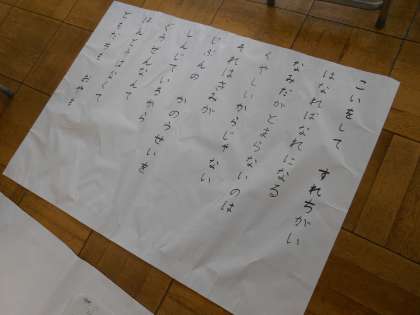 こいをして すれちがい
はなればなれになる
なみだがとまらないのは
くやしいからじゃない
それはきみが
じぶんの かのうせいを
しんじているから
ぐうぜんなんて
ほんとうはなくて